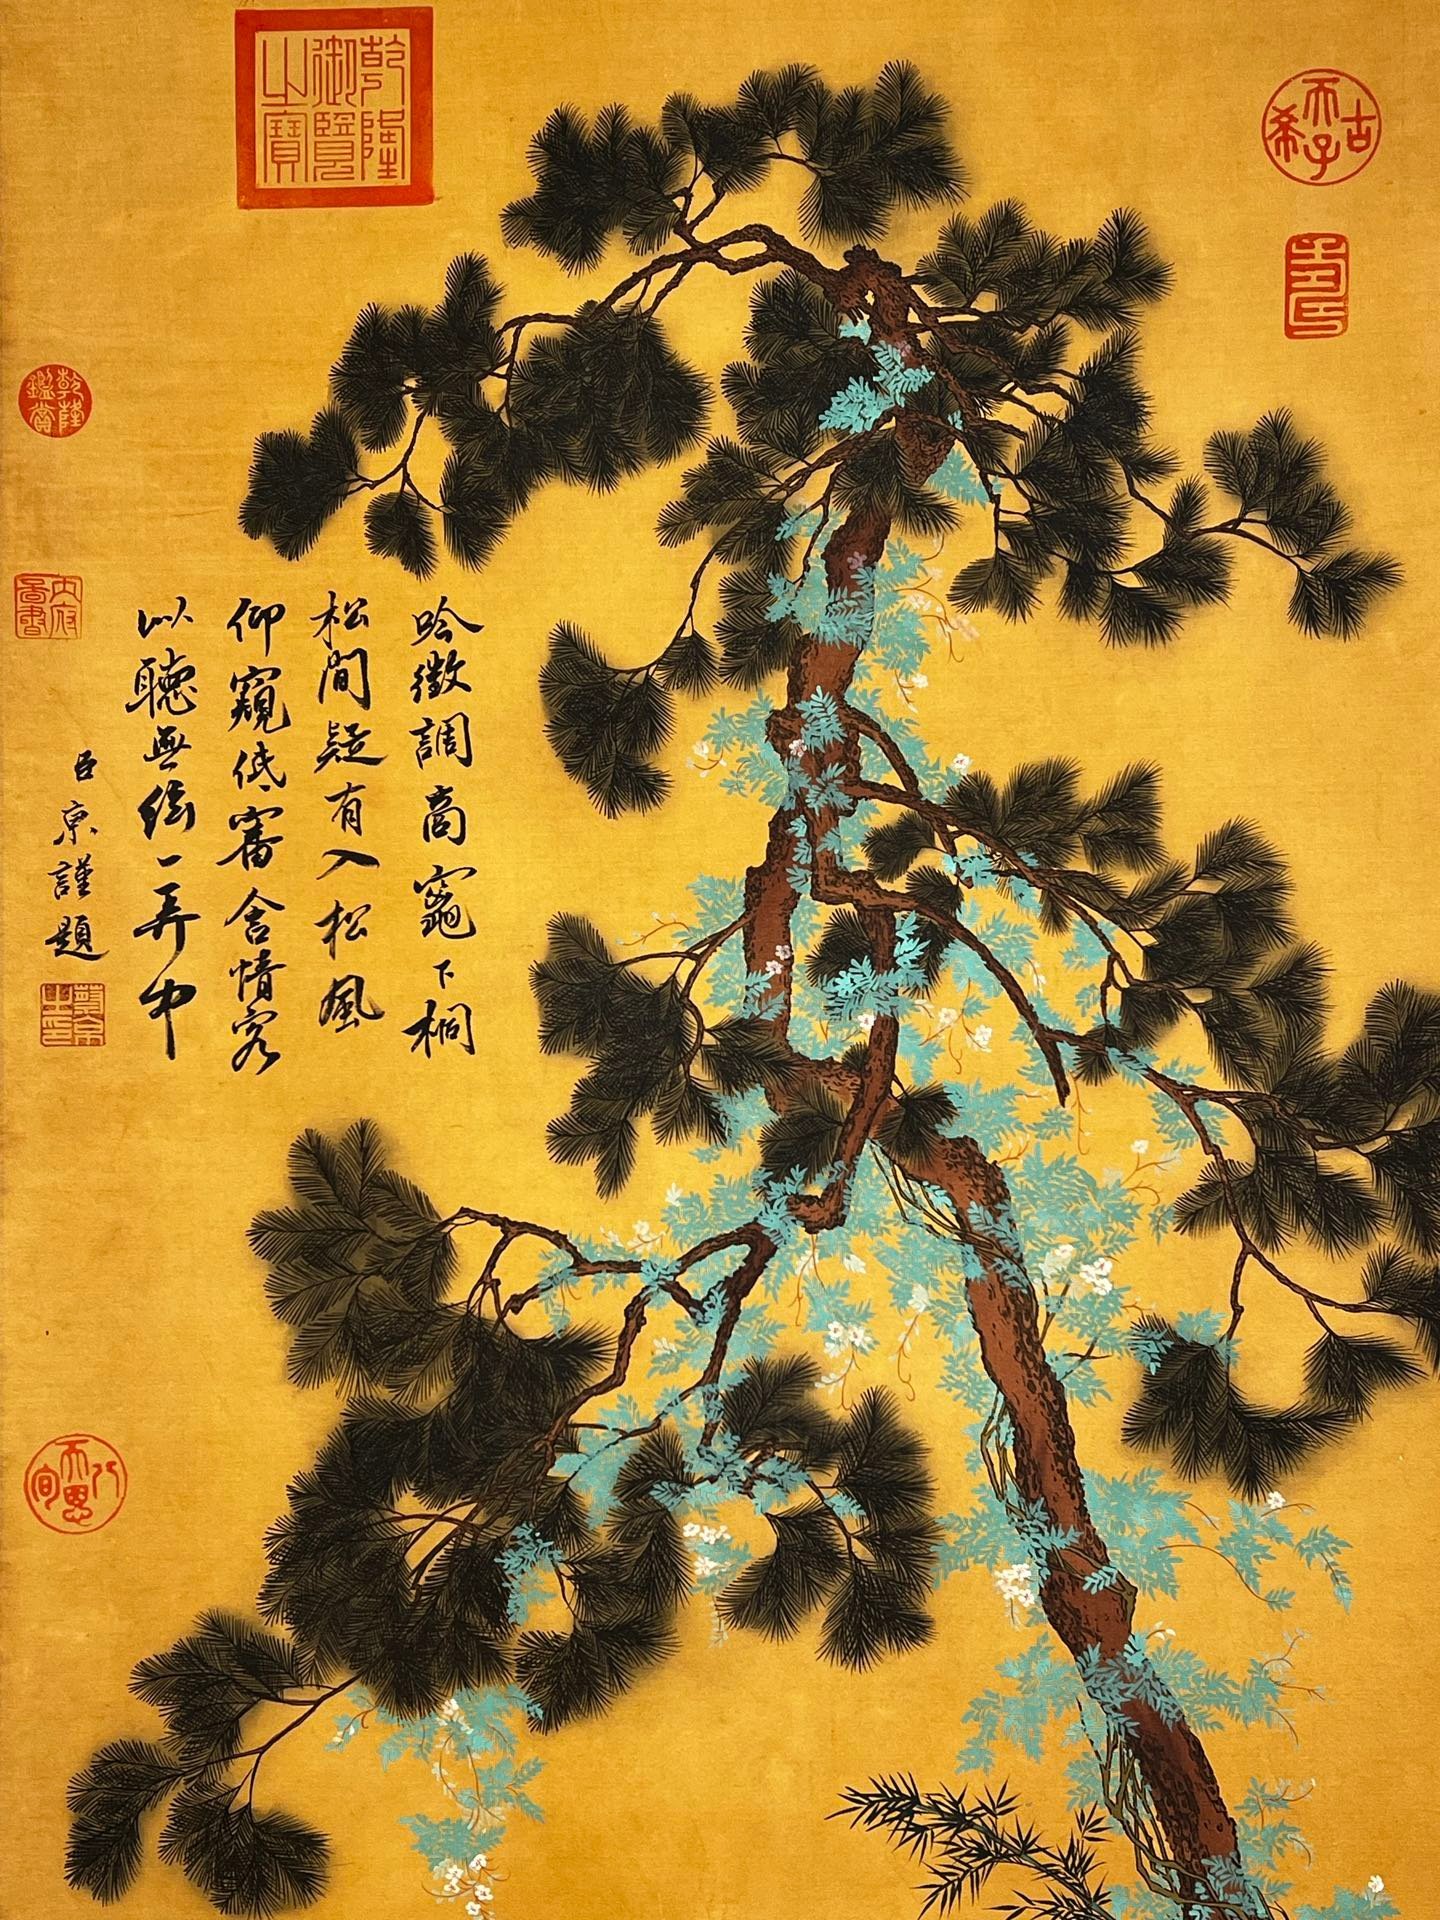 古希天子
壽
乾隆
御覽
之寶
吟徵調商竈下桐
松間疑有入松風
仰窺低審含情客
以聽無絃一弄中
臣京謹題
乾隆
鑑賞
內府
圖書
天恩八旬